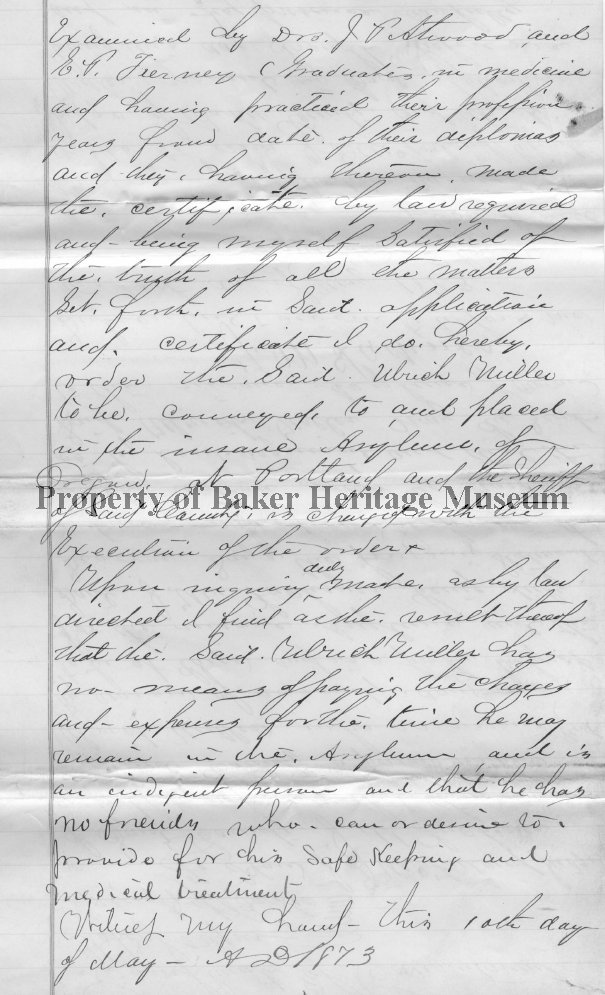 Examined by Drs. J P Atwood and
E. P. Tierney (Graduates in medicine
and having practiced their profession
years from date of their diplomas
and they having thereon made
the certificate by law required
and being myself Satisfied of
the truth of all the matters
Set forth in Said application
and certificate I do hereby
order the Said Ulrich Miller
to be conveyed to and placed
in the insane Asylum of
Oregon at Portland and the Sheriff
Property of Baker Heritage Museum
of said County is charged with the
Execution of the order
Upon inquiry duly made as by law
directed I find as the result thereof
that the Said Ulrich Miller has
no means of paying the charges
and expenses for the time he may
remain in the Asylum and is
an indigent person and that he has
no friends who can or desire to
provide for his Safe Keeping and
medical treatment
Witness my hand this 10th day
of May A D 1873